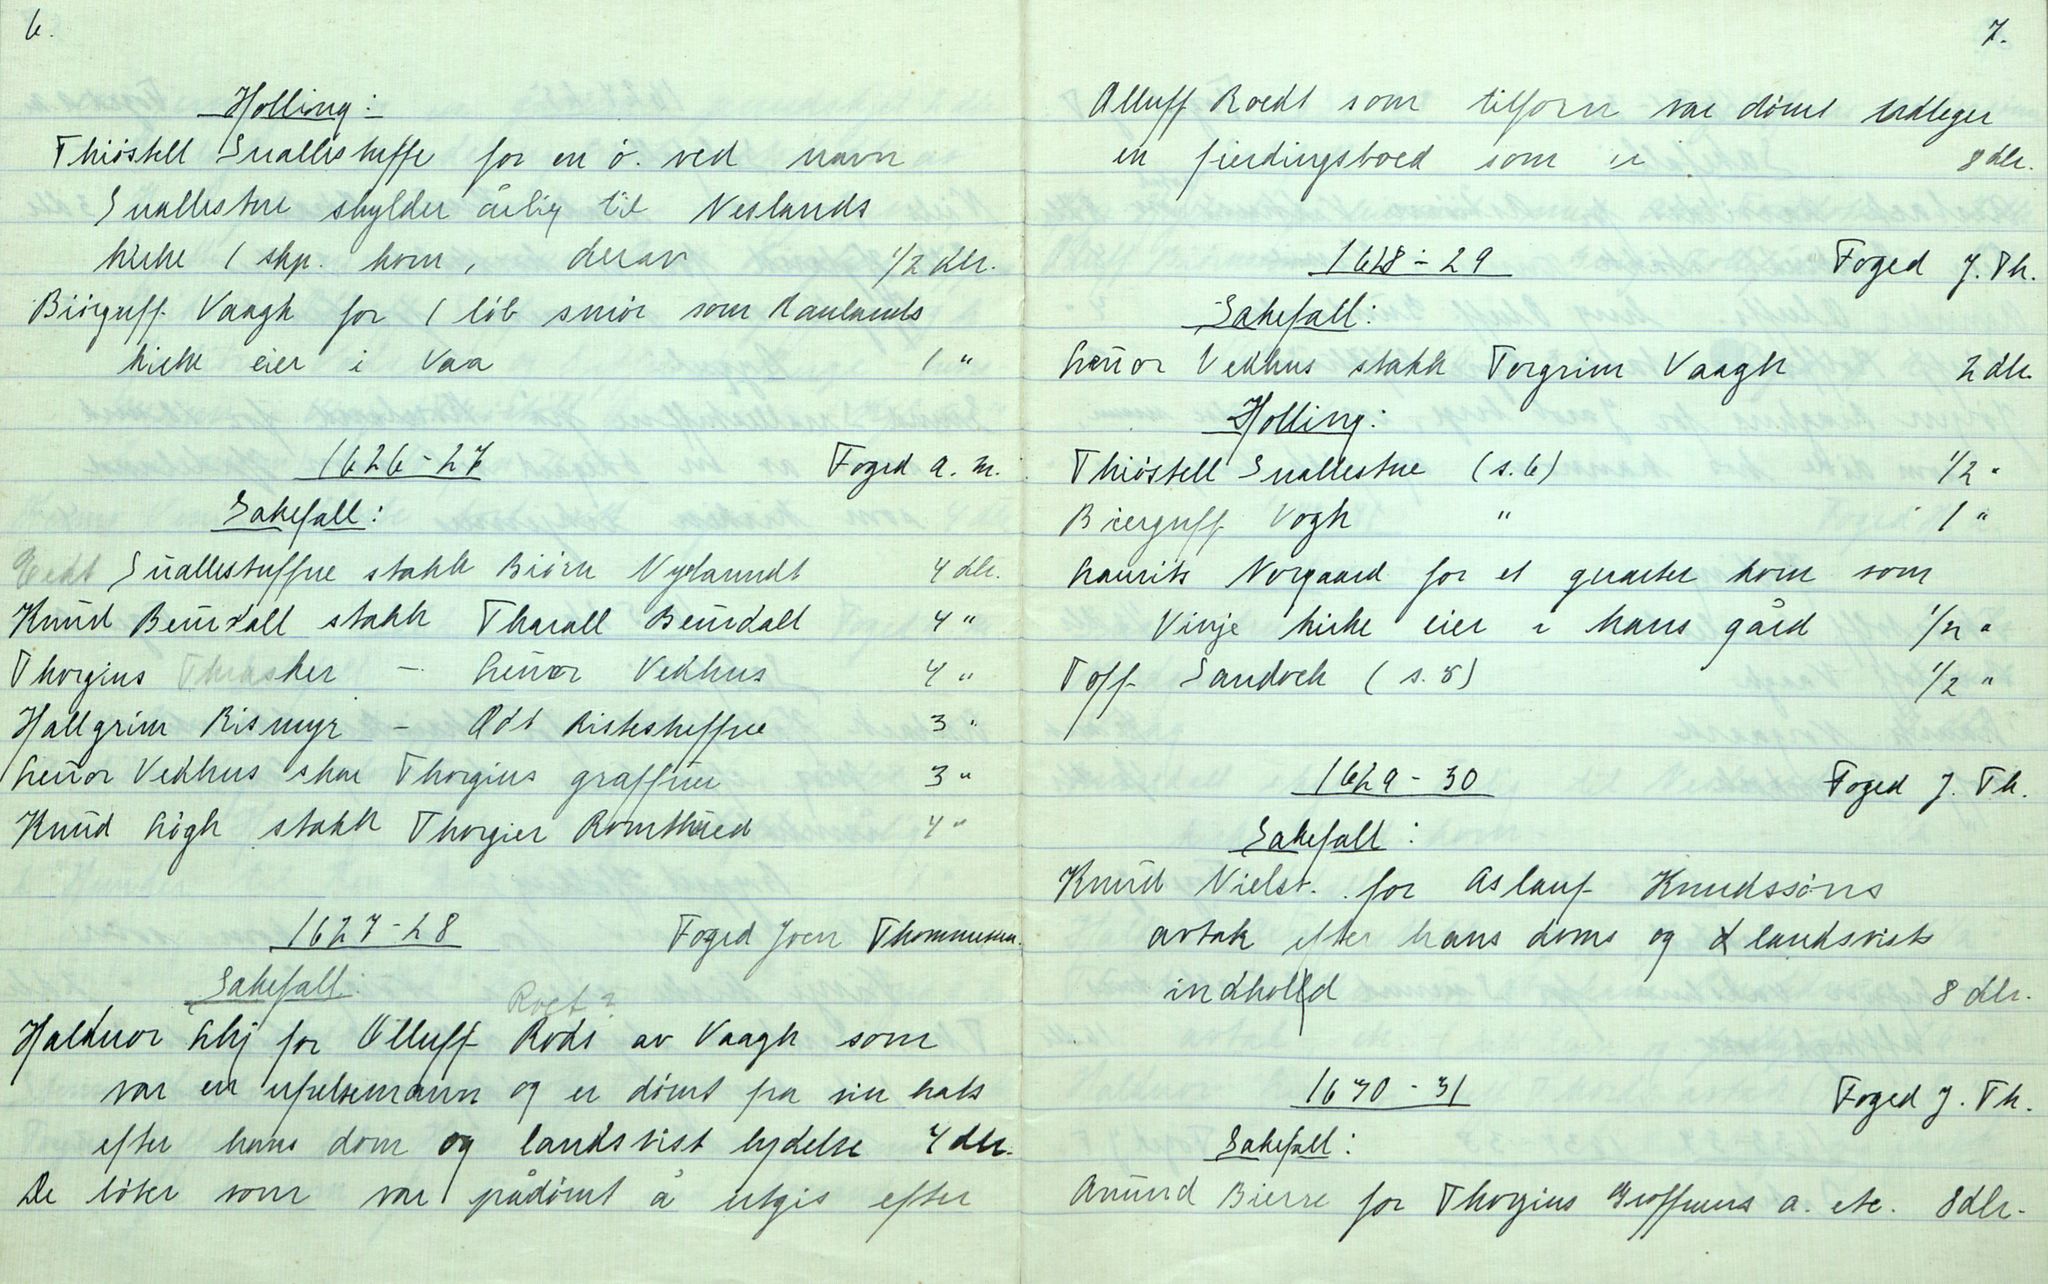 6.
Holling:
Thiöstell Suallestuffe for en ö. ved navn
Suallestue skylder årlig til Neslands
kirke 1 skp. korn, derav 1/2 dlr.
Biörguff Vaagh for 1 löb smör som Raulands
kirke eier i Vaa 1 "
1626-27 Foged A. M.
Sakefall:
Suallestuffue stakk Biörn Nylanndt 4 dlr.
Knud Beurdall stakk Tharall Beurdall 4 "
Thorgius - Leuor Vedhus 4 "
Hallgrim Rismyr - Odt Kistestuffue 3 "
Leuor Vedhus skar Thorgius graffuer 3 "
Knud Lögh stakk Thorgier Romtued 4 "
1627-28 Foged Joen Thommesen.
Sakefall:
Roet?
Halduor Lhj for Olluff Rodt av Vaagh som
var en ufrelsemann og er dömt fra sin hals
efter hans dom og landsvist lydelse 4 dlr.
De böter som var pådömt å utgis efter
7.
Olluff Roedt som tilforn var dömt udleger
en fierdingsboed som er 8 dlr.
1628-29 Foged J. Th.
Sakefall:
Leuor Vedhus stakk Torgrim Vaagh 2 dlr.
Holling:
Thiöstell Suallestue (s. 6) 1/2 "
Bierguff Vogh " 1 "
Laurits Norgaard for et quarter korn som
Vinje kirke eier i hans gård 1/2 "
Toff Sandvek (s. 5) 1/2 "
1629-30 Foged J. Th.
Sakefall:
Knud Nielss. for Aslauf Knudssöns
avtak efter hans doms og landsvists
indhold 8 dlr.
1630-31 Foged J. Th.
Sakefall:
Amund Bierre for Thorgius Groffuers a. etc. 8 dlr.